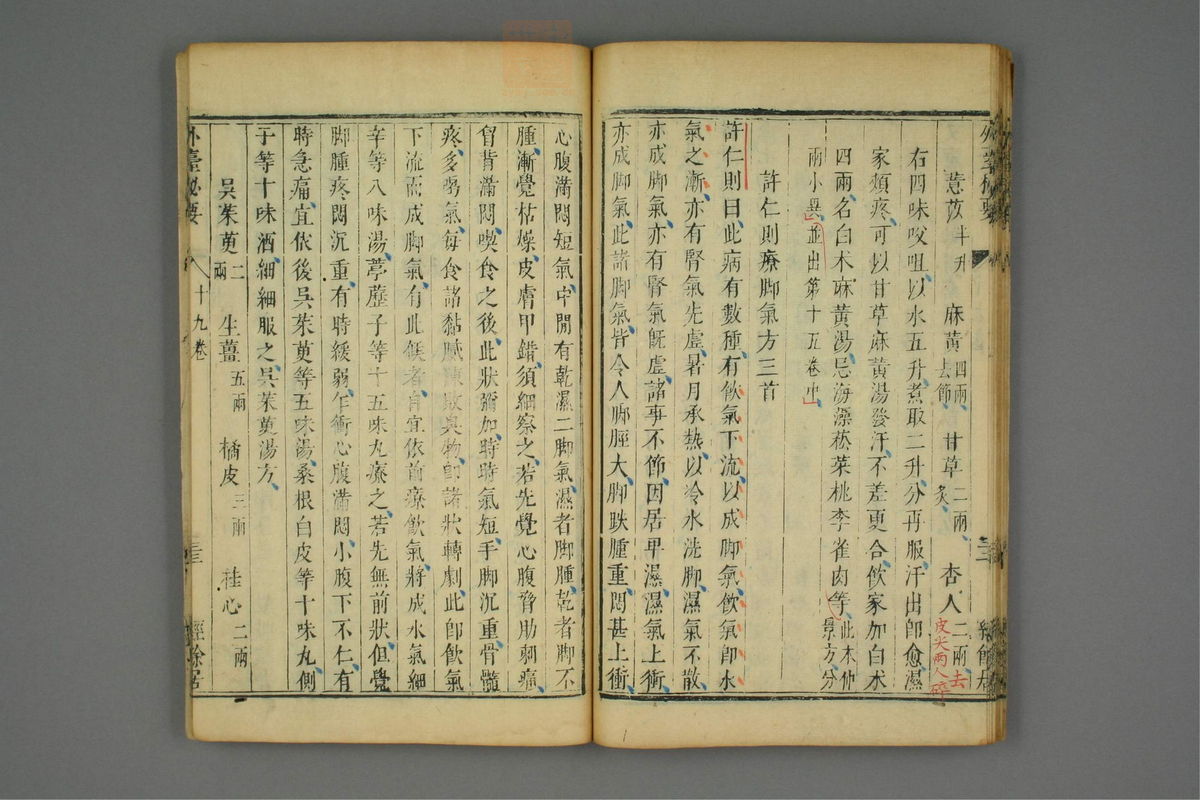 薏苡半升 麻黃四兩去節 甘草二兩炙 杏人二兩去皮尖兩人碎
右四味㕮咀以水五升煮取二升分再服汗出卽愈濕
家頻疼可以甘草麻黃湯發汗不差更合飲家加白朮
四兩名白朮麻黃湯忌海藻菘菜桃李雀肉等此本仲景方分
兩小異並出第十五卷中
許仁則療脚氣方三首
許仁則曰此病有數種有飲氣下流以成脚氣飲氣卽水
氣之漸亦有腎氣先虛暑月承熱以冷水洗脚濕氣不散
亦成脚氣亦有腎氣旣虛諸事不節因居早濕濕氣上衝
亦成脚氣此諸脚氣皆令人脚脛大脚趺腫重悶甚上衝
心腹滿悶短氣中閒有乾濕二脚氣濕者脚腫乾者脚不
腫漸覺枯燥皮膚甲錯須細察之若先覺心腹脅肋刺痛
胷背滿悶喫食之後此狀彌加時時氣短手脚沉重骨髓
疼多嚼氣每食諸黏膩陳敗臭物卽諸狀轉劇此卽飲氣
下流而成脚氣有此候者自宜依前療飲氣將成水氣細
辛等八味湯葶藶子等十五味丸療之若先無前狀但覺
脚腫疼悶沉重有時緩弱乍衝心腹滿悶小腹下不仁有
時急痛宜依後吳茱萸等五味湯桑根白皮等十味丸側
子等十味酒細細服之吳茱萸湯方
吳茱萸二兩 生薑五兩 橘皮三兩 桂心二兩
外臺祕要 十九卷 三 經餘居